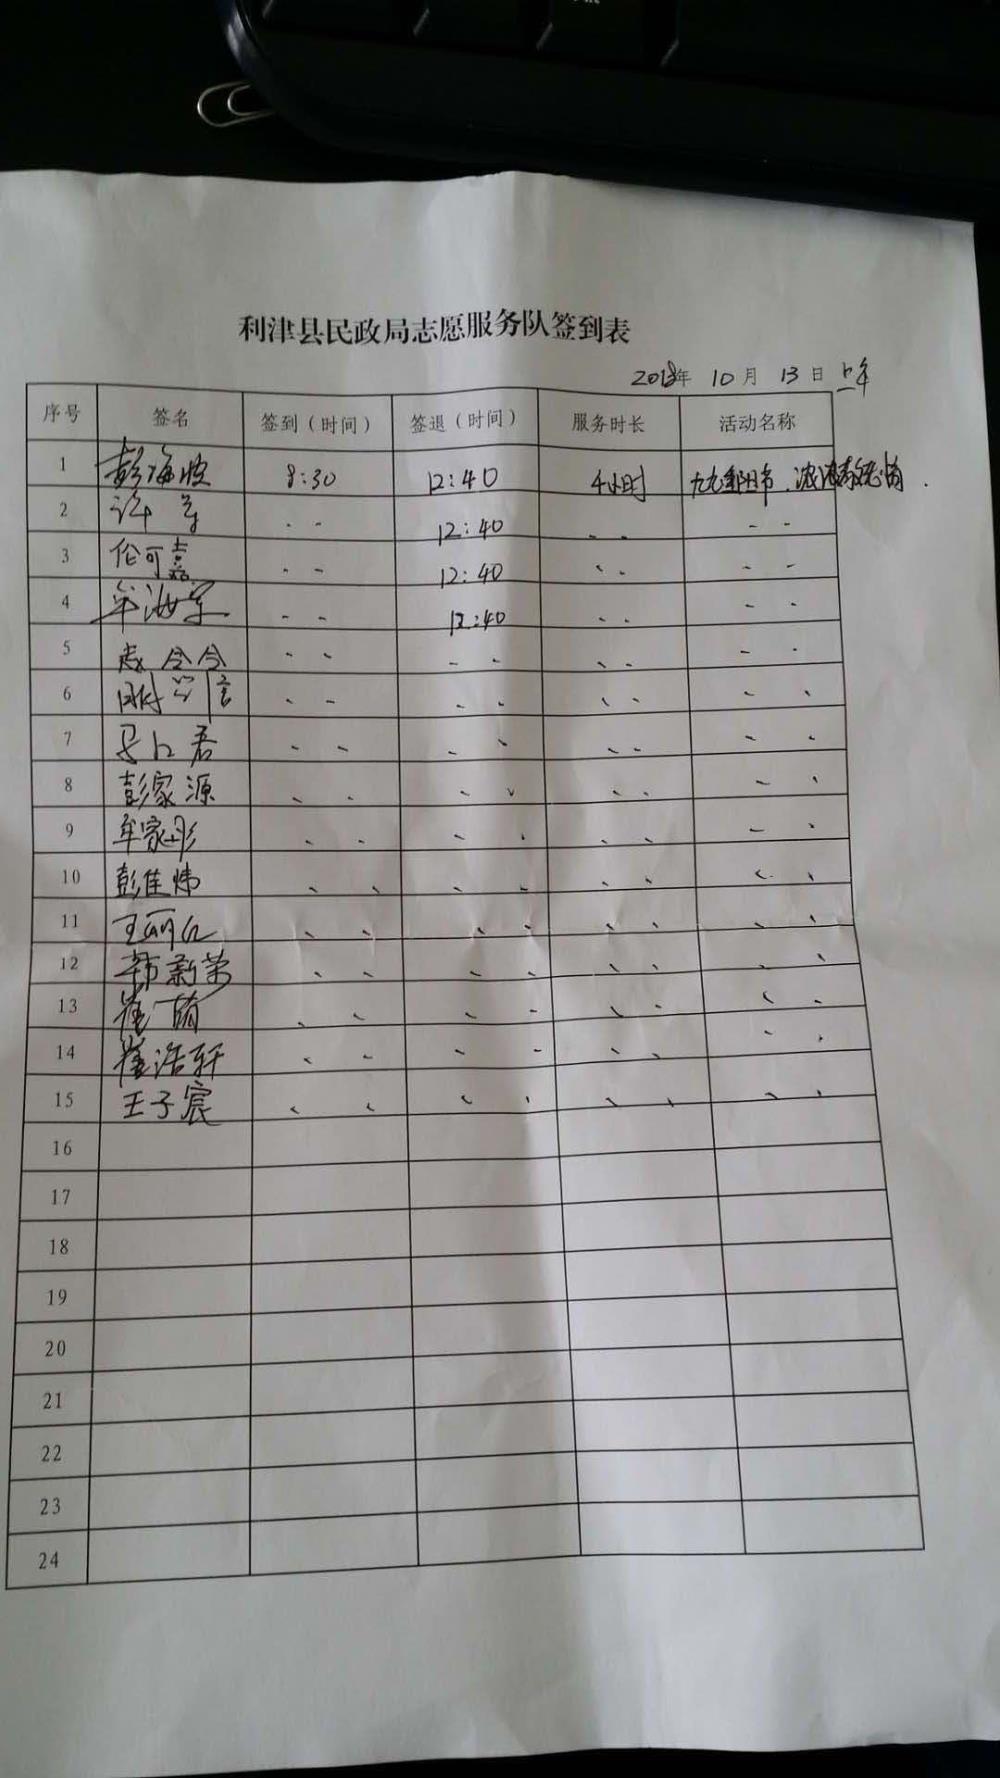 利津县民政局志愿服务队签到表
2018年 10月 13日 上午
序号 签名 签到（时间） 签退（时间） 服务时长 活动名称
1 彭海波 8:30 12:40 4小时 九九重阳节、浓浓
2 许 12:40
3 伦可嘉 12:40
4 牟海军 12:40
5 令令
6
7 君
8 彭家源
9 牟家彤
10 彭佳炜
11 王丽红
12 韩新荣
13 崔
14 崔浩轩
15 王子宸
16
17
18
19
20
21
22
23
24